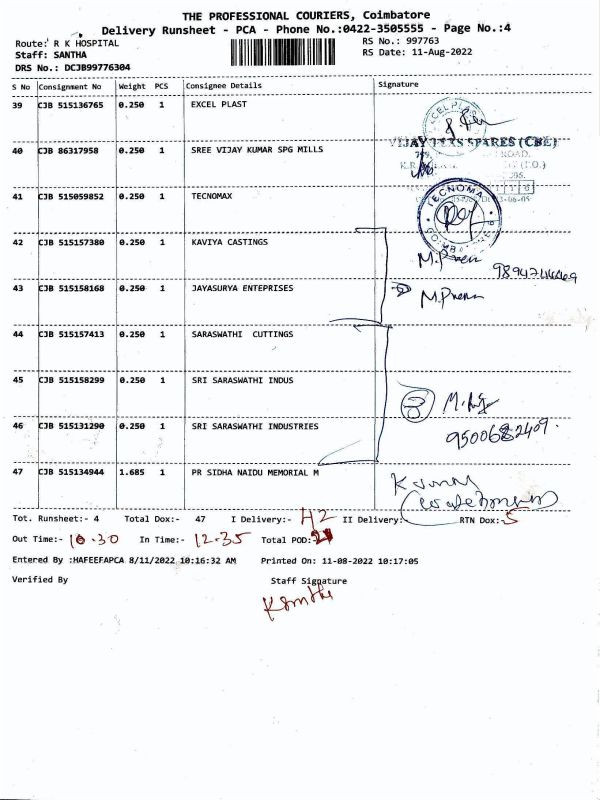 THE PROFESSIONAL COURIERS, Coimbatore
Delivery Runsheet - PCA - Phone No.:0422-3505555 - Page No.:4
Route: R K HOSPITAL
RS No.: 997763
Staff: SANTHA
RS Date: 11-Aug-2022
DRS No.: DCJB99776304
S No Consignment No Weight PCS Consignee Details Signature
39 CJB 515136765 0.250 1 EXCEL PLAST
40 CJB 86317958 0.250 1 SREE VIJAY KUMAR SPG MILLS
VIJAY TEXS SPARES (CBE)
41 CJB 515059852 0.250 1 TECNOMAX
42 CJB 515157380 0.250 1 KAVIYA CASTINGS
43 CJB 515158168 0.250 1 JAYASURYA ENTEPRISES
44 CJB 515157413 0.250 1 SARASWATHI CUTTINGS
45 CJB 515158299 0.250 1 SRI SARASWATHI INDUS
46 CJB 515131290 0.250 1 SRI SARASWATHI INDUSTRIES
47 CJB 515134944 1.685 1 PR SIDHA NAIDU MEMORIAL M
Tot. Runsheet:- 4 Total Dox:- 47 I Delivery:- 42 II Delivery:- RTN Dox:- 5
Out Time:- 10.30 In Time:- 12.35 Total POD:- 21
Entered By :HAFEEFAPCA 8/11/2022 10:16:32 AM Printed On: 11-08-2022 10:17:05
Verified By Staff Signature